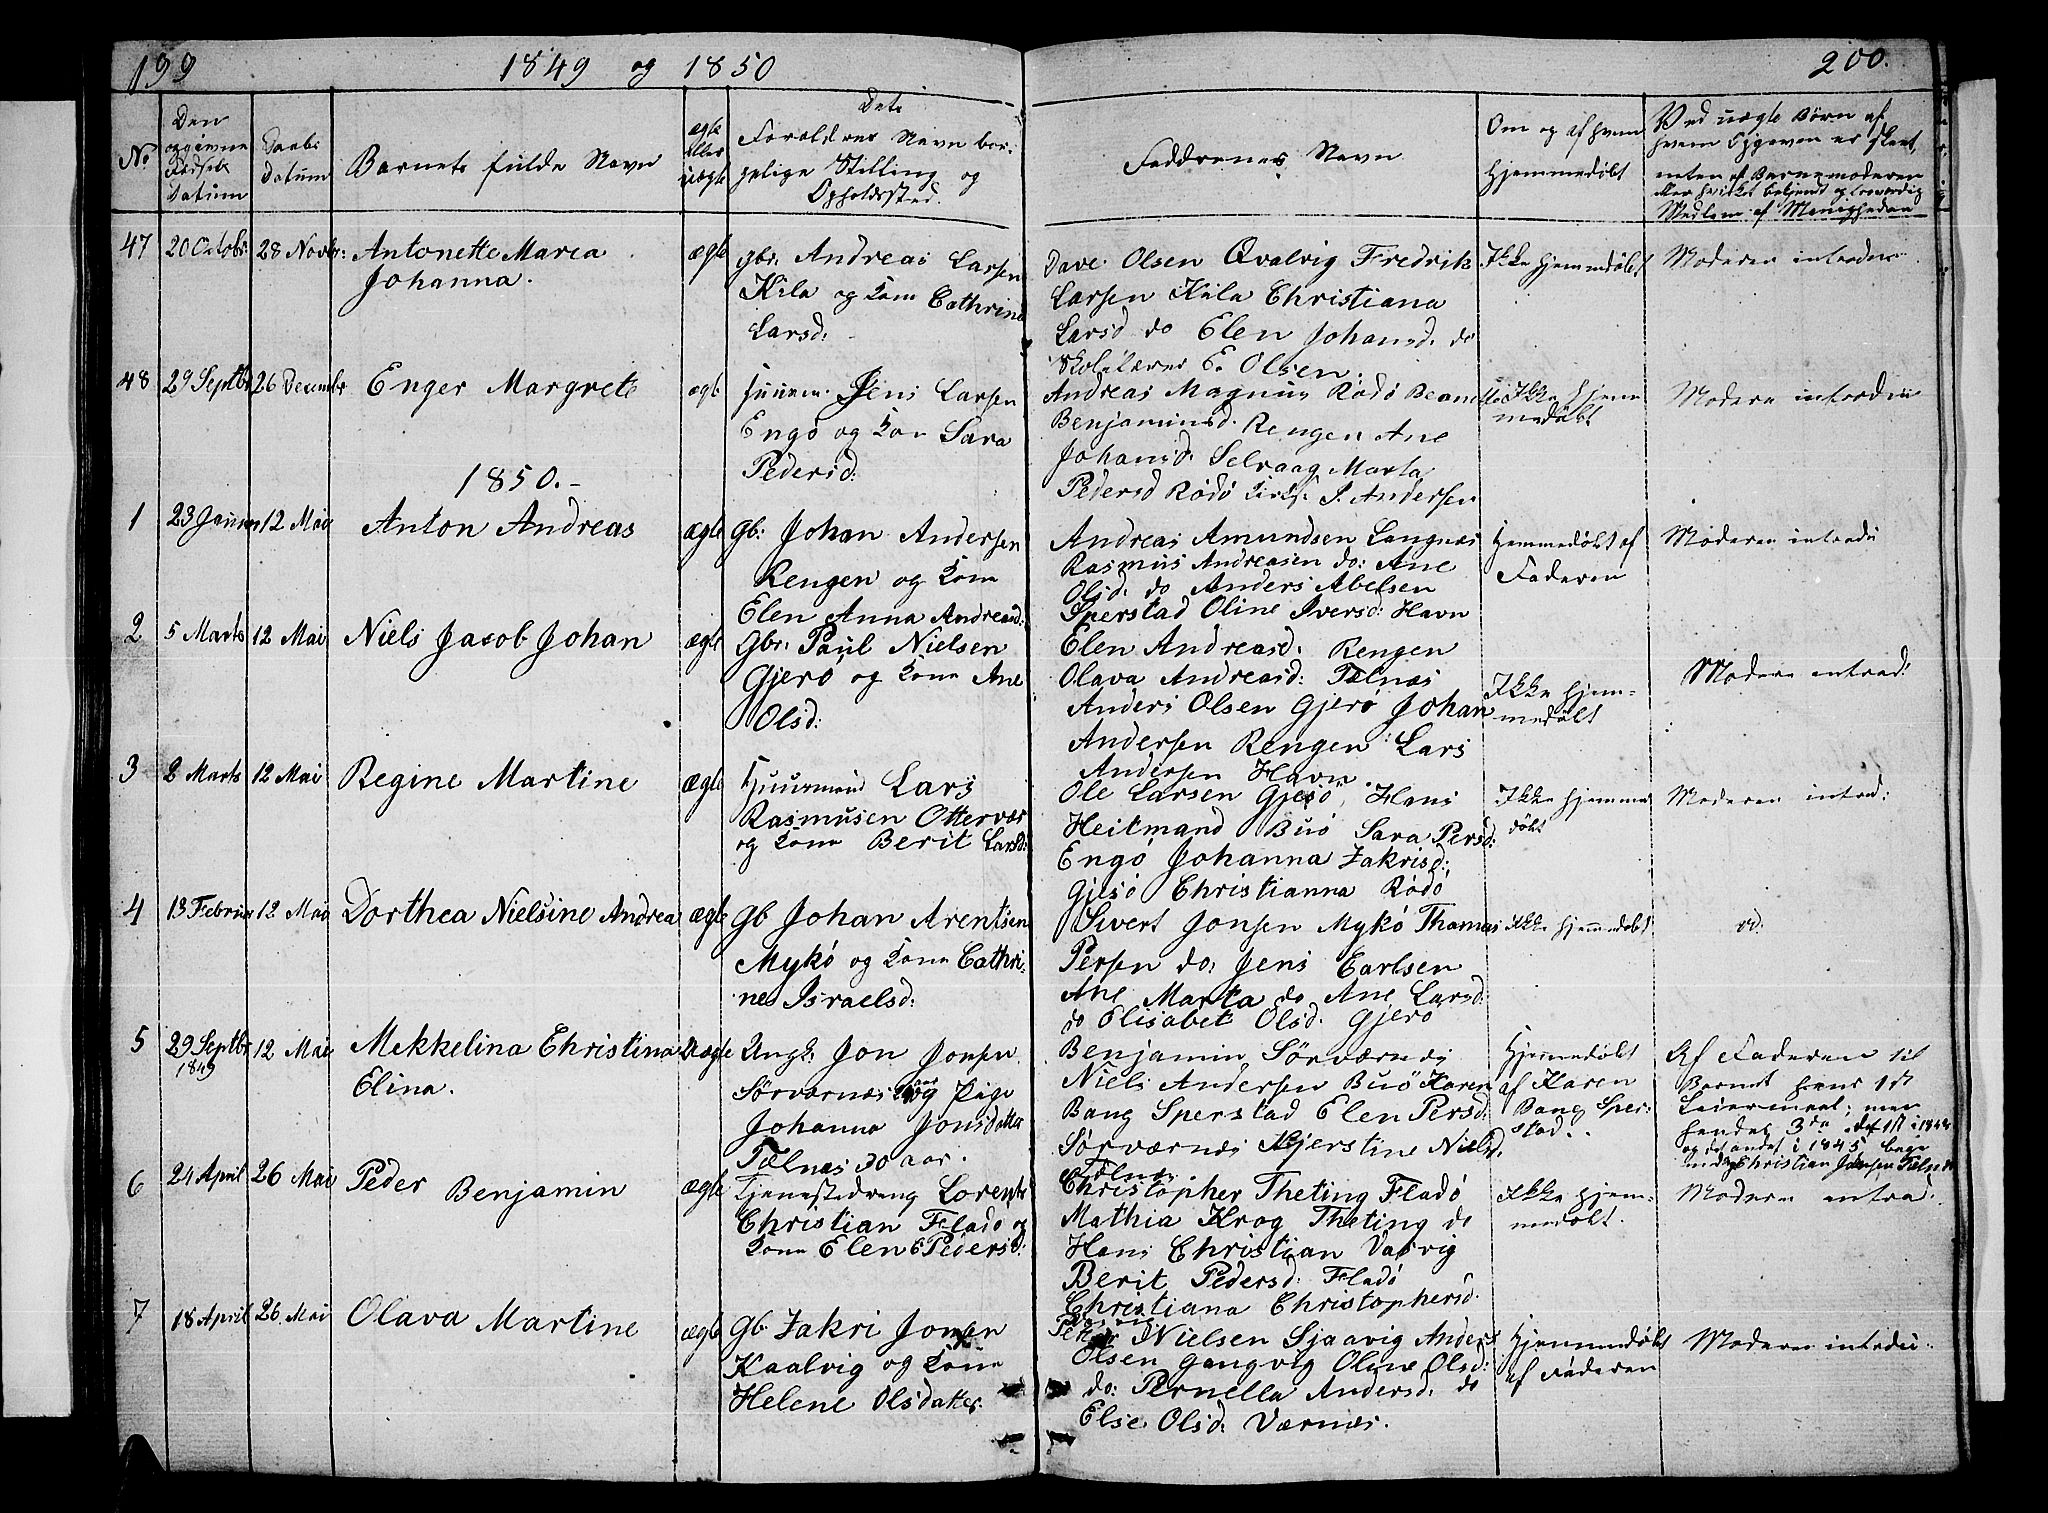 199
1849 og 1850
200.
No
Den
opgivne
Fødsels
Datum
Daabs
Datum
Barnets fulde Navn
ægte
eller
uægte
Dets
Forældres Navn bor-
gelige Stilling og
Opholdssted.
Faddrenes Navn
Om og af hvem
hjemmedøbt
Ved uægte Børn af
hvem Opgaven er skeet,
enten af Barnemoderen
eller hvilket bekjendt og troværdig
Medlem af Menigheden
47 20 Octobr 28 Novbr: Antonette Marea
Johanna.
ægte
gbr. Andreas Larsen
Kila og Kone Cathrine
Larsd:
Dave Olsen Qvalvig Fredrik
Larsen Kila Christiana
Larsd do Elen Johansd. do
Skolelærer E. Olsen.
Ikke hjemmedøbt
Moderen introdu:
48 29 Septbr 26 Decembr Enger Margrete
ægte
Huusm. Jens Larsen
Engø og Kone Sara
Pedersd:
Andreas Magnus Rødø
Benjaminsd. Rengen Ane
Johansd. Selvaag Marta
Pedersd Rødø J. Andersen
Ikke hjem
medøbt
Modere introdu
1850.-
1 23 Januar 12 Mai Anton Andreas
ægte
gb: Johan Andersen
Rengen og Kone
Elen Anna Andreasd:
Andreas Amundsen Langnæs
Rasmus Andreasen do: Ane
Olsd. do Anders Abelsen
Sperstad Oline Iversd: Havn
Hjemmedøbt af
Faderen
Moderen introdu
2 5 Marts 12 Mai Niels Jacob Johan
ægte
Gbr: Paul Nielsen
Gjerø og Kone Ane
Olsd:
Elen Andreasd. Rengen
Olava Andreasd: Tælnæs
Anders Olsen Gjerø Johan
Andersen Rengen Lars
Andersen Havn
Ikke hjem-
medøbt
Modere introd:
3 2 Marts 12 Mai Regine Martine
ægte
Huusmand Lars
Rasmusen Ottervær
og Kone Berit Larsd:
Ole Larsen Gjesø, Hans
Heitmand Buø Sara Persd:
Engø Johanna Zakrisd:
Gjesø Christianna Rødø
Ikke hjemme
døbt
Moderen introd:
4 13 Februar 12 Mai Dorthea Nielsine Andrea
ægte
gb Johan Arentsen
Mykø og Kone Cathri-
ne Israelsd:
Sivert Jonsen Mykø Thomas
Persen do: Jens Carlsen
Ane Marta do Ane Larsd:
do Elisabet Olsd. Gjerø
Ikke hjemmedøbt
id.
5 29 Septbr 12 Mai Mekkelina Christina
1849
Elina.
Uægte
Ungk. Jon Jonsen
Sørværnæs og Pige
Johanna Jonsdatter
Tælnæs 30 aar.
Benjamin Sørværnæs
Niels Andersen Buø Karen
Bang Sperstad Elen Persd:
Sørværnæs Kjerstine Nielsd.
Tælnæs
Hjemmedøbt
af Karen
Bang Sper-
stad.
Af Faderen til
Barnet hans 1ste
Leiermaal; men
hendes 3die det 1st i 184
og det andet i 1845 begge
med Christian Jensen Tælnæs
6 24 April 26 Mai Peder Benjamin
ægte
Tjenestedreng Lorents
Christian Fladø og
Kone Elen Pedersd:
Christopher Theting Fladø
Mathia Krog Theting do
Hans Christian Vasvig
Berit Pedersd: Fladø
Christiana Christophersd.
Ikke hjem-
medøbt.
Modere introd.
7 18 April 26 Mai Olava Martine
ægte
gb Zakri Jonsen
Kaalvig og Kone
Helene Olsdatter
Peter Nielsen Sjaavig Anders
Olsen Gangvig Oline Olsd:
do: Pernella Andersd. do
Else Olsd. Værnæs.
Hjemmedøbt
af Faderen
Moderen introdu: